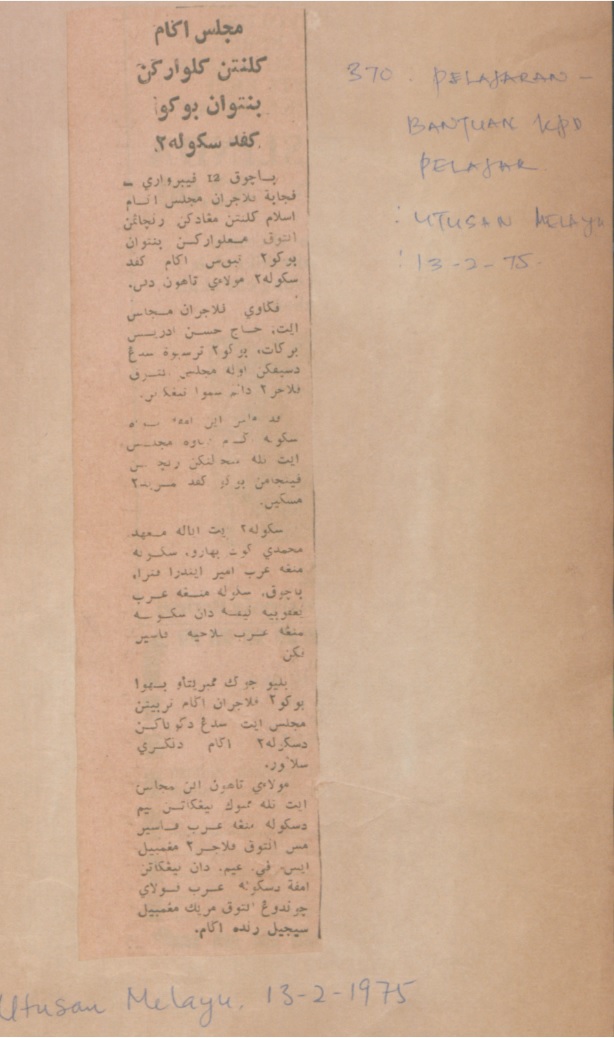 مجلس اݢام
كلنتن كلواركن
بنتوان بوكو٢
كڤد سكوله٢
باچوق 12 فيبرواري —
ڤجابة ڤلاجران مجلس اݢام
اسلام كلنتن مڠادكن رنچاڠن
انتوق مڠلواركن بنتوان
بوكو٢ تيوس اݢام كڤد
سكوله٢ مولاءي تاهون دڤن.
ڤڬاوي ڤلاجران مجلس
ايت، حاج حسن ادريس
بركات، بوكو٢ ترسبوة سدڠ
دسيڤكن اوله مجلس انتوق
ڤلاجر٢ دالم سموا تيڠكتن.
ڤد ماس اين
سكوله مجلس
ايت تله منجالنكن
ڤينجامن بوكو كڤد موريد٢
مسكين.
سكوله٢ ايت اياله معهد
محمدي كوت بهارو، سكوله
منڠه عرب امير ايندرا ڤترا،
باچوق، سكوله منڠه عرب
يعقوبيه نيڤه دان سكوله
منڠه عرب ڤاسير
بلياو جوݢ ممبريتاهو بهوا
بوكو٢ ڤلاجران اݢام تربيتن
مجلس ايت سدڠ دݢوناكن
دسكوله٢ اݢام دنݢري
سلاڠور.
مولاءي تاهون اين مجلس
ايت تله ممبوك تيڠكاتن ليم
دسكوله منڠه عرب ڤاسير
مس انتوق ڤلاجر٢ مڠمبيل
ايس. ڤي. ايم. دان تيڠكاتن
امڤة دسكوله عرب ڤولاي
چوندوڠ انتوق مريك مڠمبيل
سيجيل رنده اݢام.
370 : PELAJARAN –
BANTUAN KPD
PELAJAR
: UTUSAN MELAYU
: 13-2-75.
Utusan Melayu. 13-2-1975